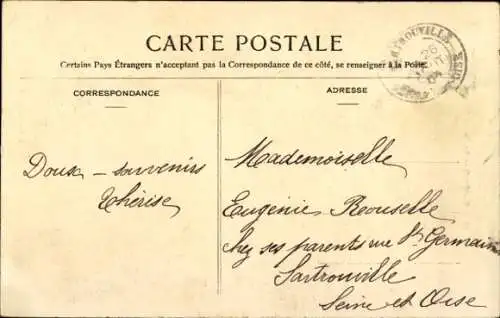 CARTE POSTALE
Certains Pays Étrangers n'acceptant pas la Correspondance de ce côté, se renseigner à la Poste.
CORRESPONDANCE
ADRESSE
Doux – souvenirs
Thérèse
Mademoiselle
Eugénie Reouselle
Chez ses parents rue St Germain
Sartrouville
Seine et Oise
SARTROUVILLE
26